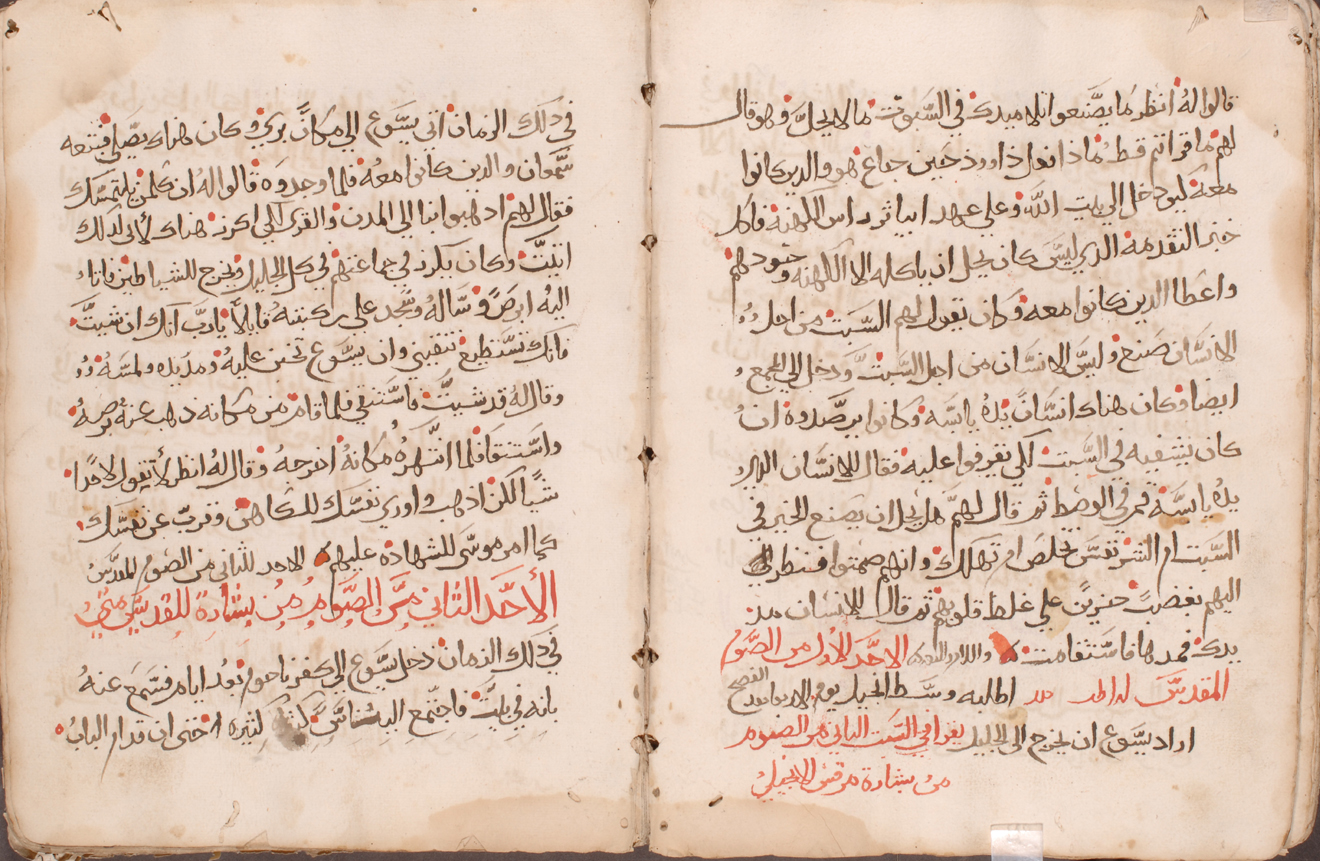 قالوا له انظر ما يصنعوا تلاميدك في السبوت ما لا يحل وهو قال
لهم ما قراتم قط ماذا نوا داوود حين جاع هو والدين كانوا
معه كيف دخل الي بيت الله وعلي عهد ابياثر راس الكهنة فاكل
خبز التقدمة الدي ليس كان يحل ان ياكله الا الكهنه وحدهم
واعطا الدين كانوا معه وكان يقول لهم السبت من اجل
الانسان صنع وليس الانسان من اجل السبت ودخل الي المجمع
ايضا وكان هناك انسان يده يابسه وكانوا يرصدوه ان
كان يشفيه في السبت لكي يقرفوا عليه فقال للانسان الدي
يده يابسة قم في الوسط ثم قال لهم هل يحل ان يصنع الخير في
السبت ام الشر نفس تخلص ام تهلك وانهم صمتوا فنظر
اليهم بغضب حزين علي غلظ قلوبهم ثم قال للانسان مد
يدك فمدها فاستقامت الاحد الاول من الصوم
المقدس اطلبه وسط الانجيل يوم الاربعا بعد الفصح
اراد يسوع ان يخرج الي الجليل يقرا في السبت التاني من الصوم
من بشارة مرقس الانجيلي
في دلك الزمان اتي يسوع الي مكان بري وكان هناك يصلي فتبعه
سمعان والدين كانوا معه فلما وجدوه قالوا له ان كلمن يلتمسك
فقال لهم ادهبوا بنا الي المدن والقري لكي اكرز هناك لأني لدلك
اتيت وكان يكرز في جماعتهم في كل الجليل ويخرج للشياطين فاتاه
اليه ابرص وساله وسجد علي ركبتيه قايلا يا رب انك ان شيت
فانك تستطيع تنقيني وان يسوع تحنن عليه ومد يده ولمسه
وقال له قد شيت فاستنقي فلما قام من مكانه دهب عنه برصه
واستنقا فلما انتهره مكانه اخرجه وقال له انظر لأ تقول لاحدا
شيا لكن ادهب واوري نفسك للكاهن وقرب عن نفسك
كما امر موسي للشهادة عليهم الاحد الثاني من الصوم المقدس
الأحد الثاني من الصوم من بشارة القديس متي
في دلك الزمان دخل يسوع الي كفرناحوم بعد ايام فسمع عنه
بانه في بيت فاجتمع اليه ناس كثيره حتي ان قدام الباب